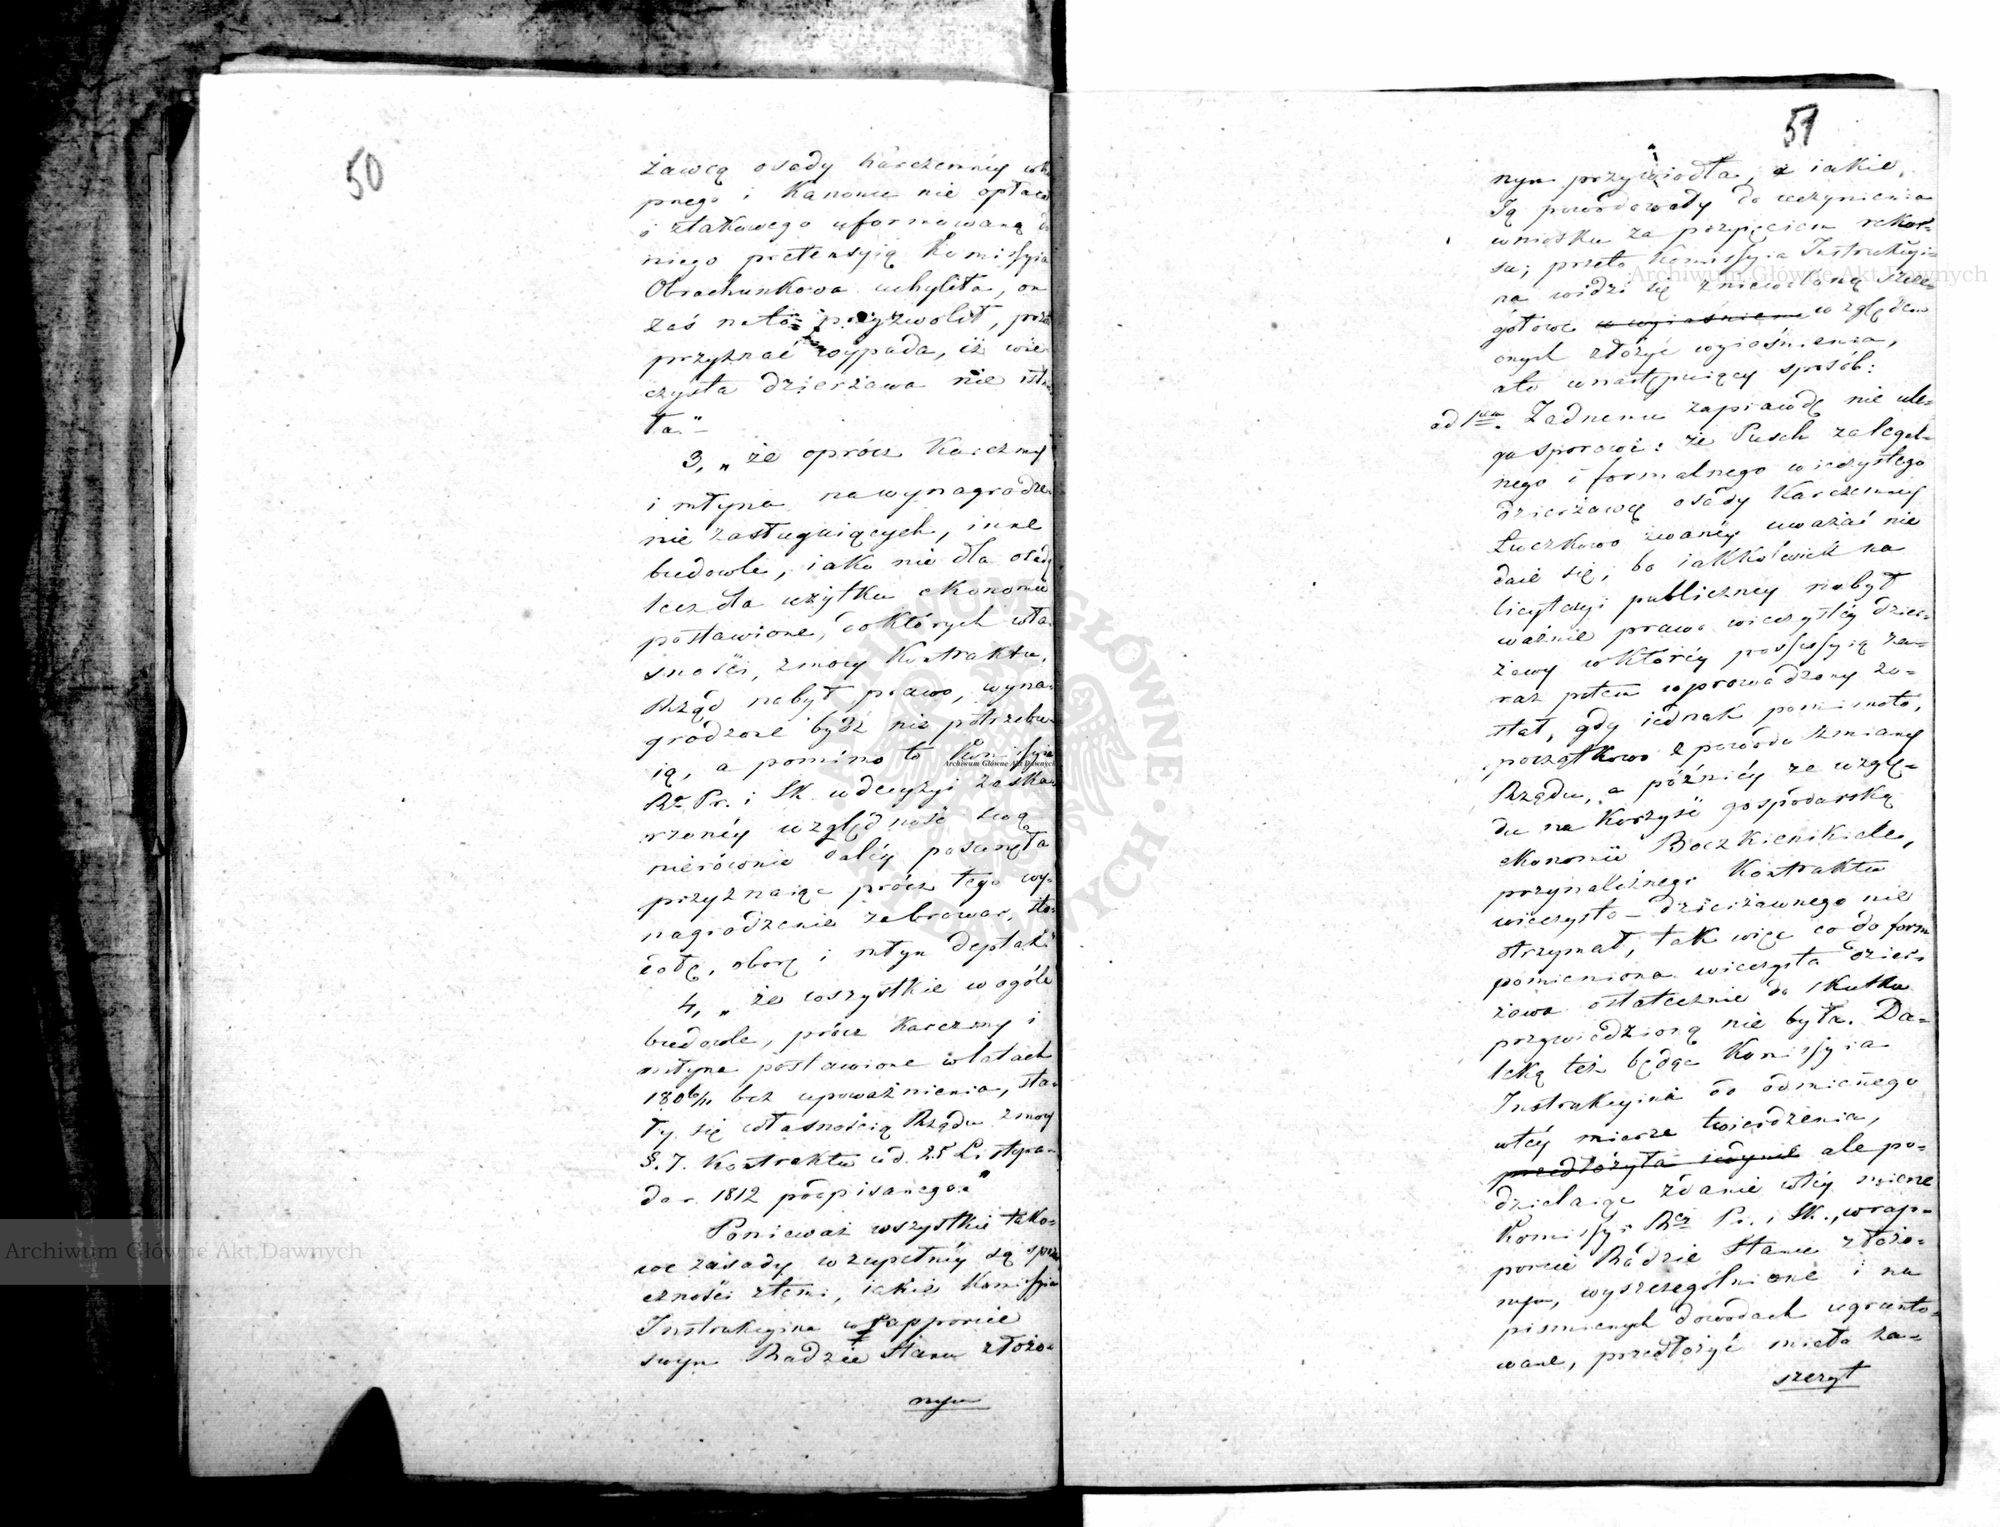 50
żawcą osady karczemnéy
pnego i Kanonu nie opłacał
i ztakowego uformowaną do
niego pretensyią Kommissyia
Obrachunkowa uchyliła, on
zaś nato przyzwolił, prze
przyznać wypada, iż wie
czysta dzierżawa nie ist
ła."
3, „że oprócz Karczmy
i młyna nawynagrodze
nie zasługuiących, inne
budowle, iako nie dla osady
lecz dla użytku ekonomii
postawione, do których wła
sności, zmocy Kontraktu,
Rząd nabył prawo, wyna
grodzone bydź nie potrzebu
ią, a pomimo to Kommissyia
Rz. Pr. i Sk. w decyzyi zaska
rżonéy względność swą
nierównie daléy posunęła
przyznaiąc prócz tego wy-
nagrodzenie za browar, sto
dołę, oborę i młyn deptak"
4, „że wszystkie wogóle
budowle, prócz Karczmy i
młyna postawione wlatach
180 6/11 bez upoważnienia, sta-
ły się własnością Rządu zmocy
§. 7. Kontraktu w d. 25 Listopa-
da r. 1812 podpisanego."
Ponieważ wszystkie tako-
we zasady wzupełnéy są sprze
czności ztemi, iakie Kommissyia
Instrukcyina w rapporcie
swym Radzie Stanu złożo-
nym
51
nym przywiodła, a iakie
Ją powodowały do uczynienia
wniosku za przyięciem rekur-
su; przeto Kommissyia Instrukcyi-
na widzi się zniewoloną szcze-
gółowe w wyiaśnieniu względem
onych złożyć wyiaśnienia,
ato wnastępuiący sposób:
ad 1um. Żadnemu zaprawdę nie ule-
ga sporowi: że Pusch zalegal-
nego i formalnego wieczystego
dzierżawcę osady Karczemnéy
Łuczkowo zwanéy uważać nie
daie się, bo iakkolwiek na
licytacyi publiczney nabył
ważnie prawo wieczystéy dzier-
żawy w któréy possessyią za-
raz potem wprowadzony zo-
stał, gdy iednak pomimoto,
początkowo z powodu zmiany
Rządu, a późniéy ze wzglę-
du na korzyść gospodarską
ekonomii Boczkienikiele,
przynależnego Kontraktu
wieczysto-dzierżawnego nie
otrzymał, tak więc co do formy
pomieniona wieczysta dzier-
żawa ostatecznie do skutku
przywiedzioną nie była. Da-
leką też będąc Kommissyia
Instrukcyina do odmiennego
wtéy mierze twierdzenia,
przedłożyła iedynie ale po-
dzielaiąc zdanie wtéy mierze
Kommissyi Rz. Pr. i Sk., w rap-
porcie Radzie Stanu złożo-
nym, wyszczególnione i na
pismiennych dowodach ugrunto-
wane, przedłożyć miała za-
szczyt
Archiwum Główne Akt Dawnych
Archiwum Główne Akt Dawnych
Archiwum Główne Akt Dawnych